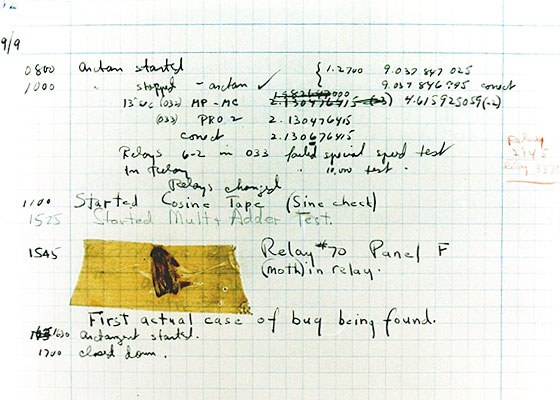 9/9
0800 antan started { 1.2700 9.037 847 025
1000 " stopped - antan ✓ 9.037 846 995 correct
13"uc (032) MP-MC 2.130476415 (-3) 4.615925059(-2)
(033) PRO 2 2.130476415
correct 2.130676415
Relays 6-2 in 033 failed special speed test
In Relay " 10,000 test.
Relay
Relays changed
1100 Started Cosine Tape (Sine check)
1525 Started Mult+Adder Test.
1545 Relay #70 Panel F
(moth) in relay.
First actual case of bug being found.
1630 antangent started.
1700 closed down.